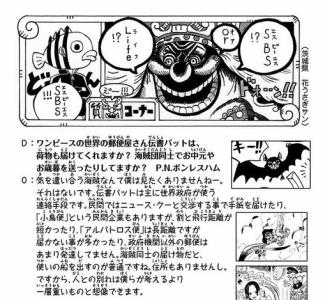 SBS
エスビーエス
!?
or
オア
Life
ライフ
!?
SBS
エスビーエス
!?
質問コーナー
(茨城県 花うさぎサン)
D：ワンピースの世界の郵便屋さん伝書バットは、
荷物も届けてくれますか？ 海賊団同士でお中元や
お歳暮を送ったりしてますか？ P.N.ボンレスハム
O：気を遣い合う海賊なんて僕は見たくありませんねー。
それはないです。伝書バットは主に世界政府が使う
連絡手段です。民間ではニュース・クーと交渉する事で手紙を届けたり、
「小鳥便」という民間企業もありますが、割と飛行距離が
短かったり、「アルバトロス便」は長距離ですが
届かない事が多かったり、政府機関以外の郵便は
あまり発達してません。海賊同士の届け物だと、
使いの船を出すのが普通ですな。住所もありませんし。
ですから、人との別れは僕らが考えるより
一層重いものと想像できます。
キー!!